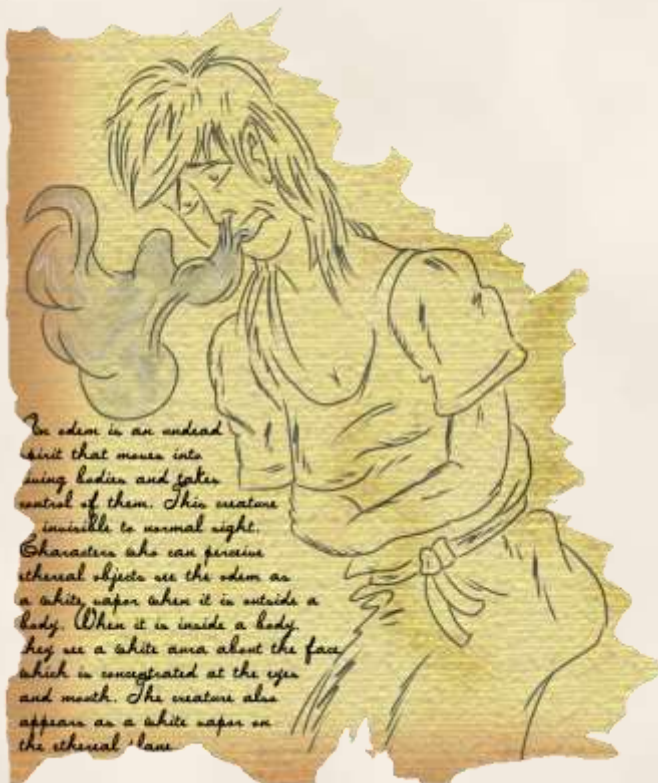 An odem is an undead
spirit that moves into
living bodies and takes
control of them. This creature
invisible to normal sight.
Characters who can perceive
ethereal objects see the odem as
a white vapor when it is outside a
body. When it is inside a body,
they see a white aura about the face
which is concentrated at the eyes
and mouth. The creature also
appears as a white vapor on
the ethereal plane